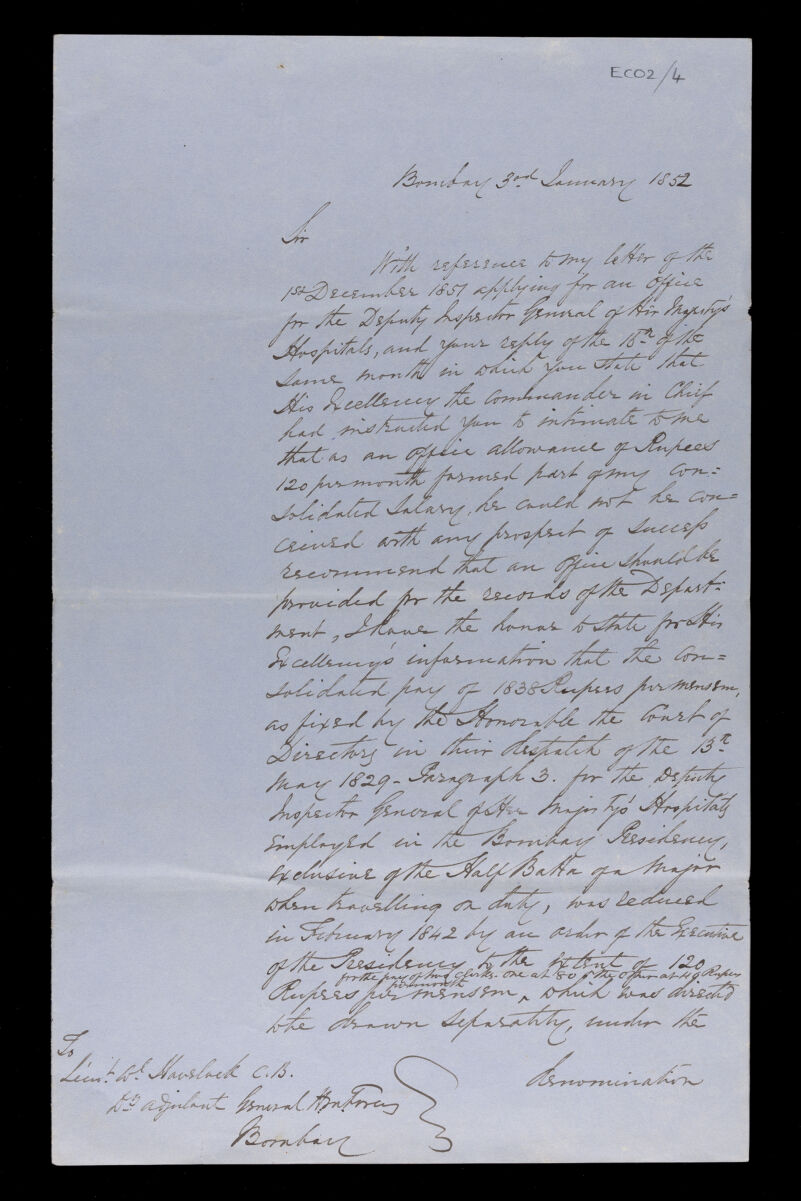 ECO2/4
Bombay 3rd January 1852
Sir
With reference to my letter of the
1st December 1851 applying for an office
for the Deputy Inspector General of Her Majesty's
Hospitals, and your reply of the 18th of the
same month in which you state that
His Excellency the Commander in Chief
had instructed you to intimate to me
that as an office allowance of Rupees
120 per month formed part of my con=
solidated Salary, he could not he con=
ceived with any prospect of success
recommend that an office should be
provided for the records of the Depart=
ment, I have the honor to state for His
Excellency's information that the con=
solidated pay of 1838 Rupees per mensem,
as fixed by the Honorable the Court of
Directors in their despatch of the 13th
May 1829 - Paragraph 3. for the Deputy
Inspector General of Her Majesty's Hospitals
employed in the Bombay Presidency,
exclusive of the Half Batta of a Major
when travelling on duty, was reduced
in February 1842 by an order of the Executive
of the Presidency to the extent of 120
for the pay of two clerks. one at 80 & the other at 40 Rupees
per month
Rupees per mensem, which was directed
to be drawn separately, under the
denomination
To
Lieut. Col. Havelock C.B.
Dy. Adjutant General H.M. Forces
Bombay